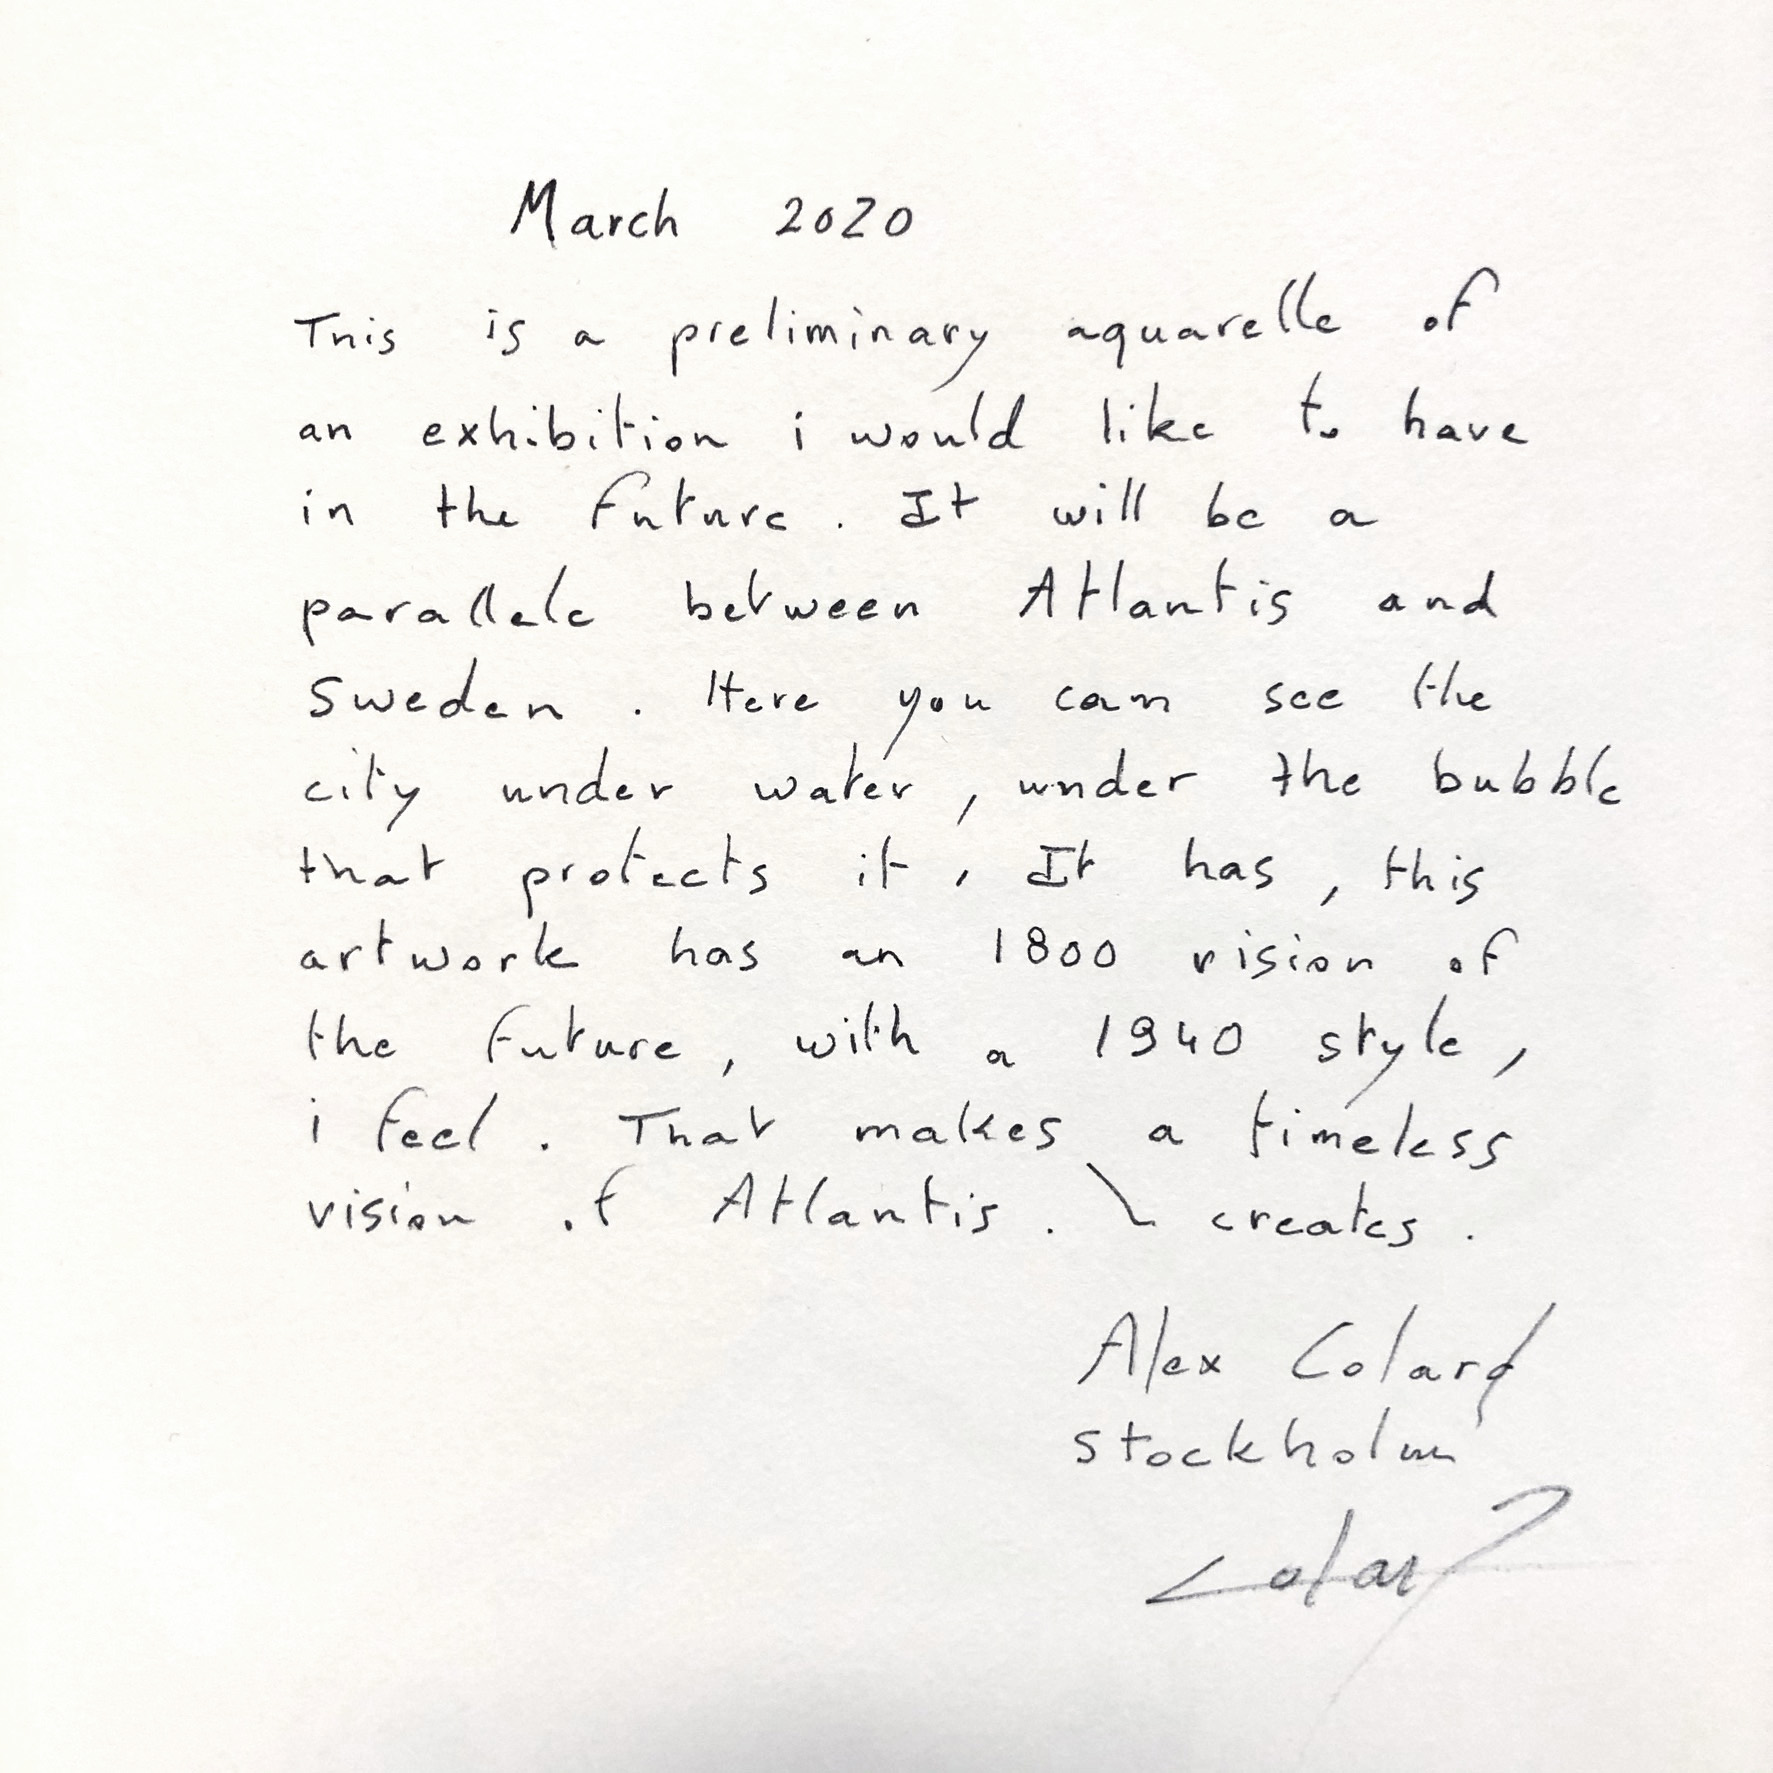 March 2020
This is a preliminary aquarelle of
an exhibition i would like to have
in the future. It will be a
parallele between Atlantis and
Sweden. Here you can see the
city under water, under the bubble
that protects it, It has, this
artwork has an 1800 vision of
the future, with a 1940 style,
i feel. That makes a timeless
vision of Atlantis. creates.
Alex Colard
Stockholm
Colard